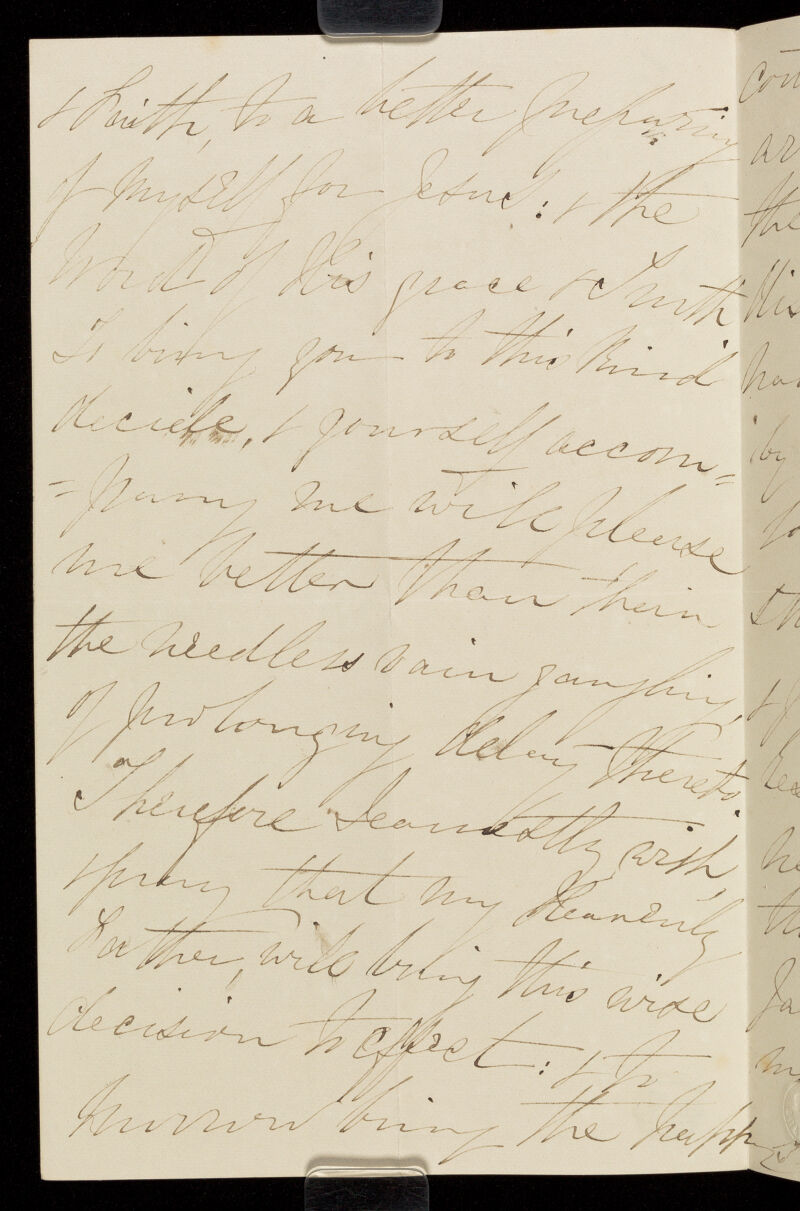 & Faith, to a better preparing
of myself for Jesus: & the
Word of His grace & Truth
To bring you to this kind
decide, & yourself accom=
=pany me will please
me better than their
the needless vain
of prolonging delay thereto.
Therefore I earnestly wish,
& pray that my Heavenly
Father, will bring this wise
decision to effect: & to
morrow bring the happy
con
ar
the
His
ha
by
to
sh
&